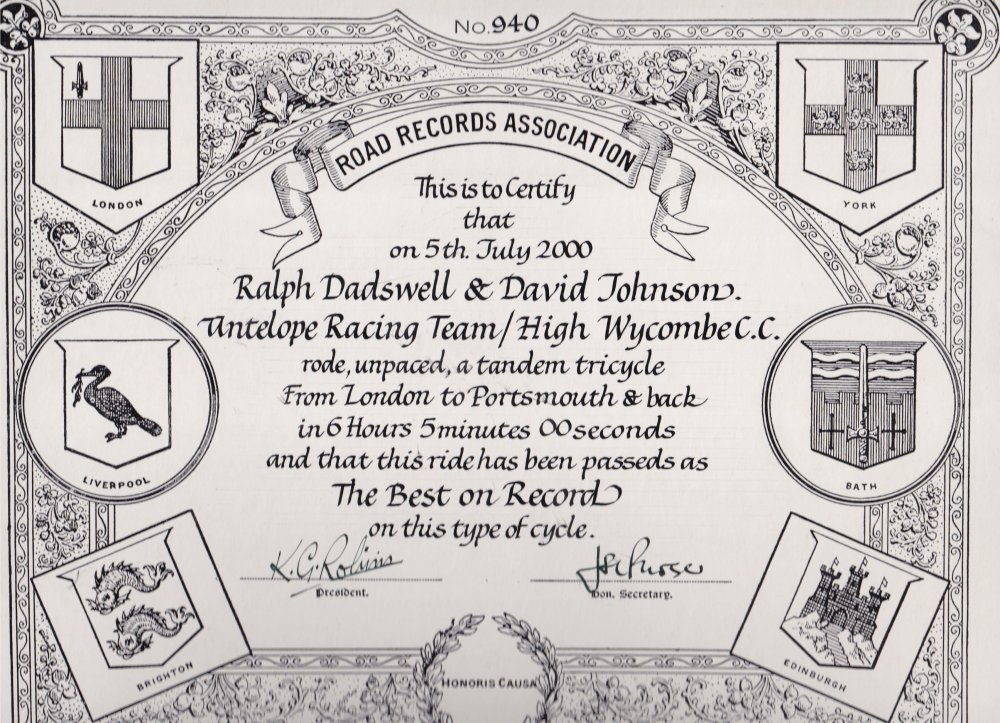 No. 940
ROAD RECORDS ASSOCIATION
LONDON
YORK
This is to Certify
that
on 5th. July 2000
Ralph Dadswell & David Johnson.
Antelope Racing Team/High Wycombe C.C.
rode, unpaced, a tandem tricycle
From London to Portsmouth & back
in 6 Hours 5 minutes 00 seconds
and that this ride has been passeds as
The Best on Record
on this type of cycle.
LIVERPOOL
BATH
K.G. Robins
President.
Hon. Secretary.
BRIGHTON
EDINBURGH
HONORIS CAUSA